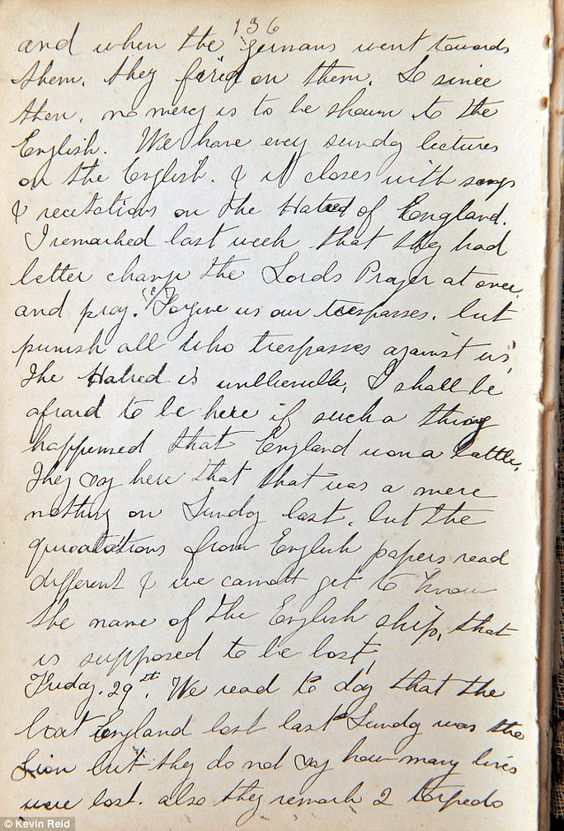 136
and when the germans went towards
them. they fired on them. So since
then, no mercy is to be shown to the
English. We have every sunday lectures
on the English. & it closes with songs
& recitations on the Hatred of England.
I remarked last week that they had
better change the Lords Prayer at once
and pray. "Forgive us our trespasses. but
punish all who trespasses against us,
The Hatred is unbelievable, I shall be
afraid to be here if such a thing
happened that England won a battle.
They say here that that was a mere
nothing on Sunday last. but the
quoatations from English papers read
different & we cannott get to know
the name of the English ship, that
is supposed to be lost,
Friday. 29st. We read to day that the
boat England lost last Sunday was the
Lion but they do not say how many lives
were lost. also they remark 2 torpedo
© Kevin Reid